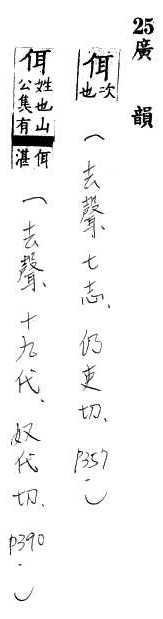 25廣韻
佴次也(去聲、七志、仍吏切、p357.)
佴姓也山公集有佴湛(去聲、十九代、奴代切、p390.)